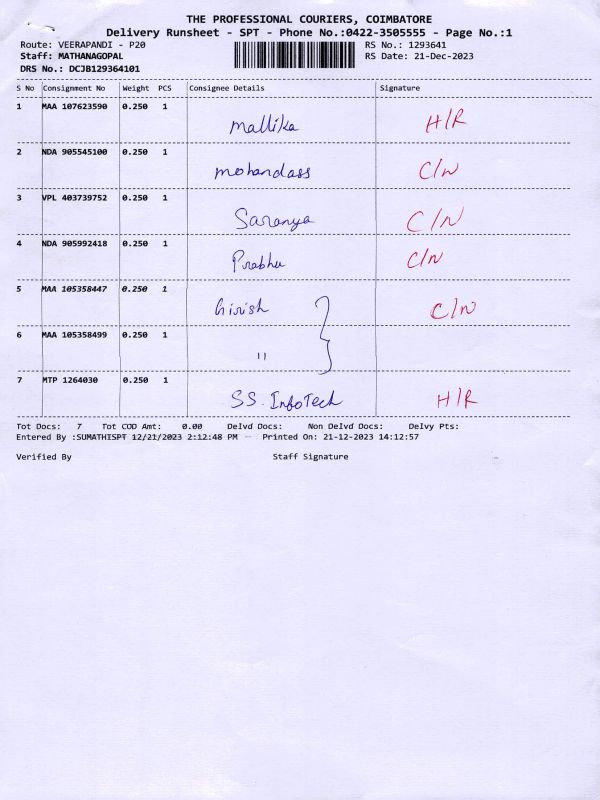 THE PROFESSIONAL COURIERS, COIMBATORE
Delivery Runsheet - SPT - Phone No.:0422-3505555 - Page No.:1
Route: VEERAPANDI - P20 RS No.: 1293641
Staff: MATHANAGOPAL RS Date: 21-Dec-2023
DRS No.: DCJB129364101
S No Consignment No Weight PCS Consignee Details Signature
1 MAA 107623590 0.250 1
Mallika H/R
2 NDA 905545100 0.250 1
mohandass C/N
3 VPL 403739752 0.250 1
Saranya C/N
4 NDA 905992418 0.250 1
Prabhu C/N
5 MAA 105358447 0.250 1
Girish C/N
6 MAA 105358499 0.250 1
"
7 MTP 1264030 0.250 1
SS. InfoTech H/R
Tot Docs: 7 Tot COD Amt: 0.00 Delvd Docs: Non Delvd Docs: Delvy Pts:
Entered By :SUMATHISPT 12/21/2023 2:12:48 PM -- Printed On: 21-12-2023 14:12:57
Verified By Staff Signature